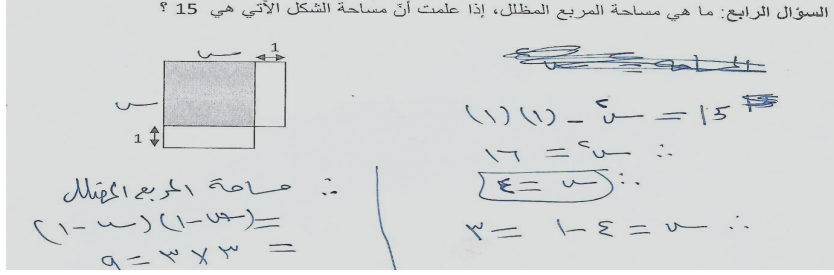 السؤال الرابع: ما هي مساحة المربع المظلل، إذا علمت أنّ مساحة الشكل الآتي هي 15 ؟
س
1
س
1
15 = س٢ - (١)(١)
∴ س٢ = ١٦
∴ س = ٤
∴ س = ٤ - ١ = ٣
∴ مساحة المربع المظلل
= (س - ١)(س - ١)
= ٣ × ٣ = ٩